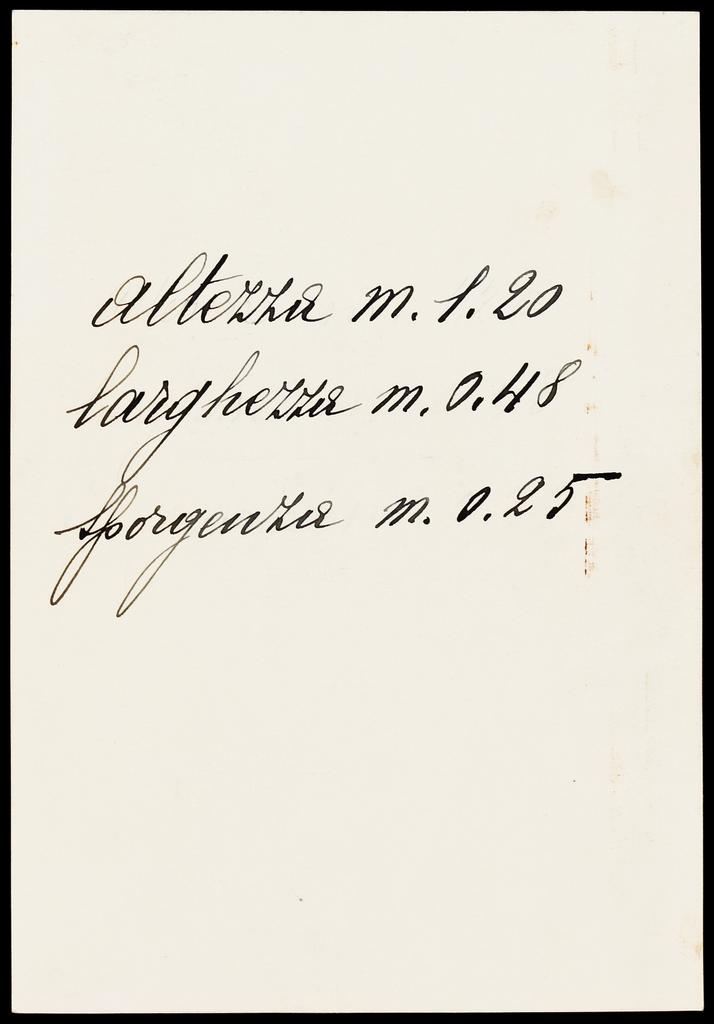 altezza m. 1.20
larghezza m. 0.48
sporgenza m. 0.25